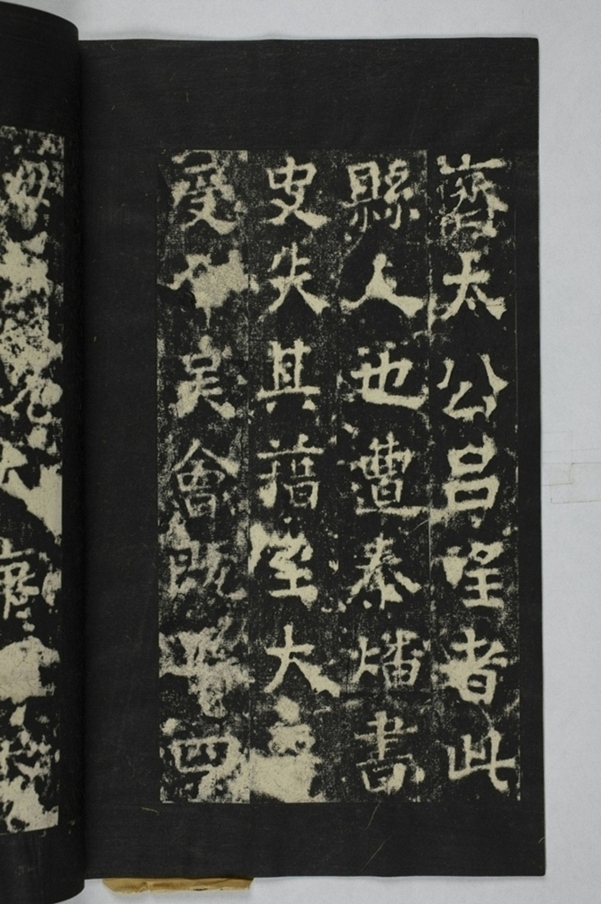 齊太公呂望者此
縣人也遭秦燔書
史失其藉至大
受吳會既四
康